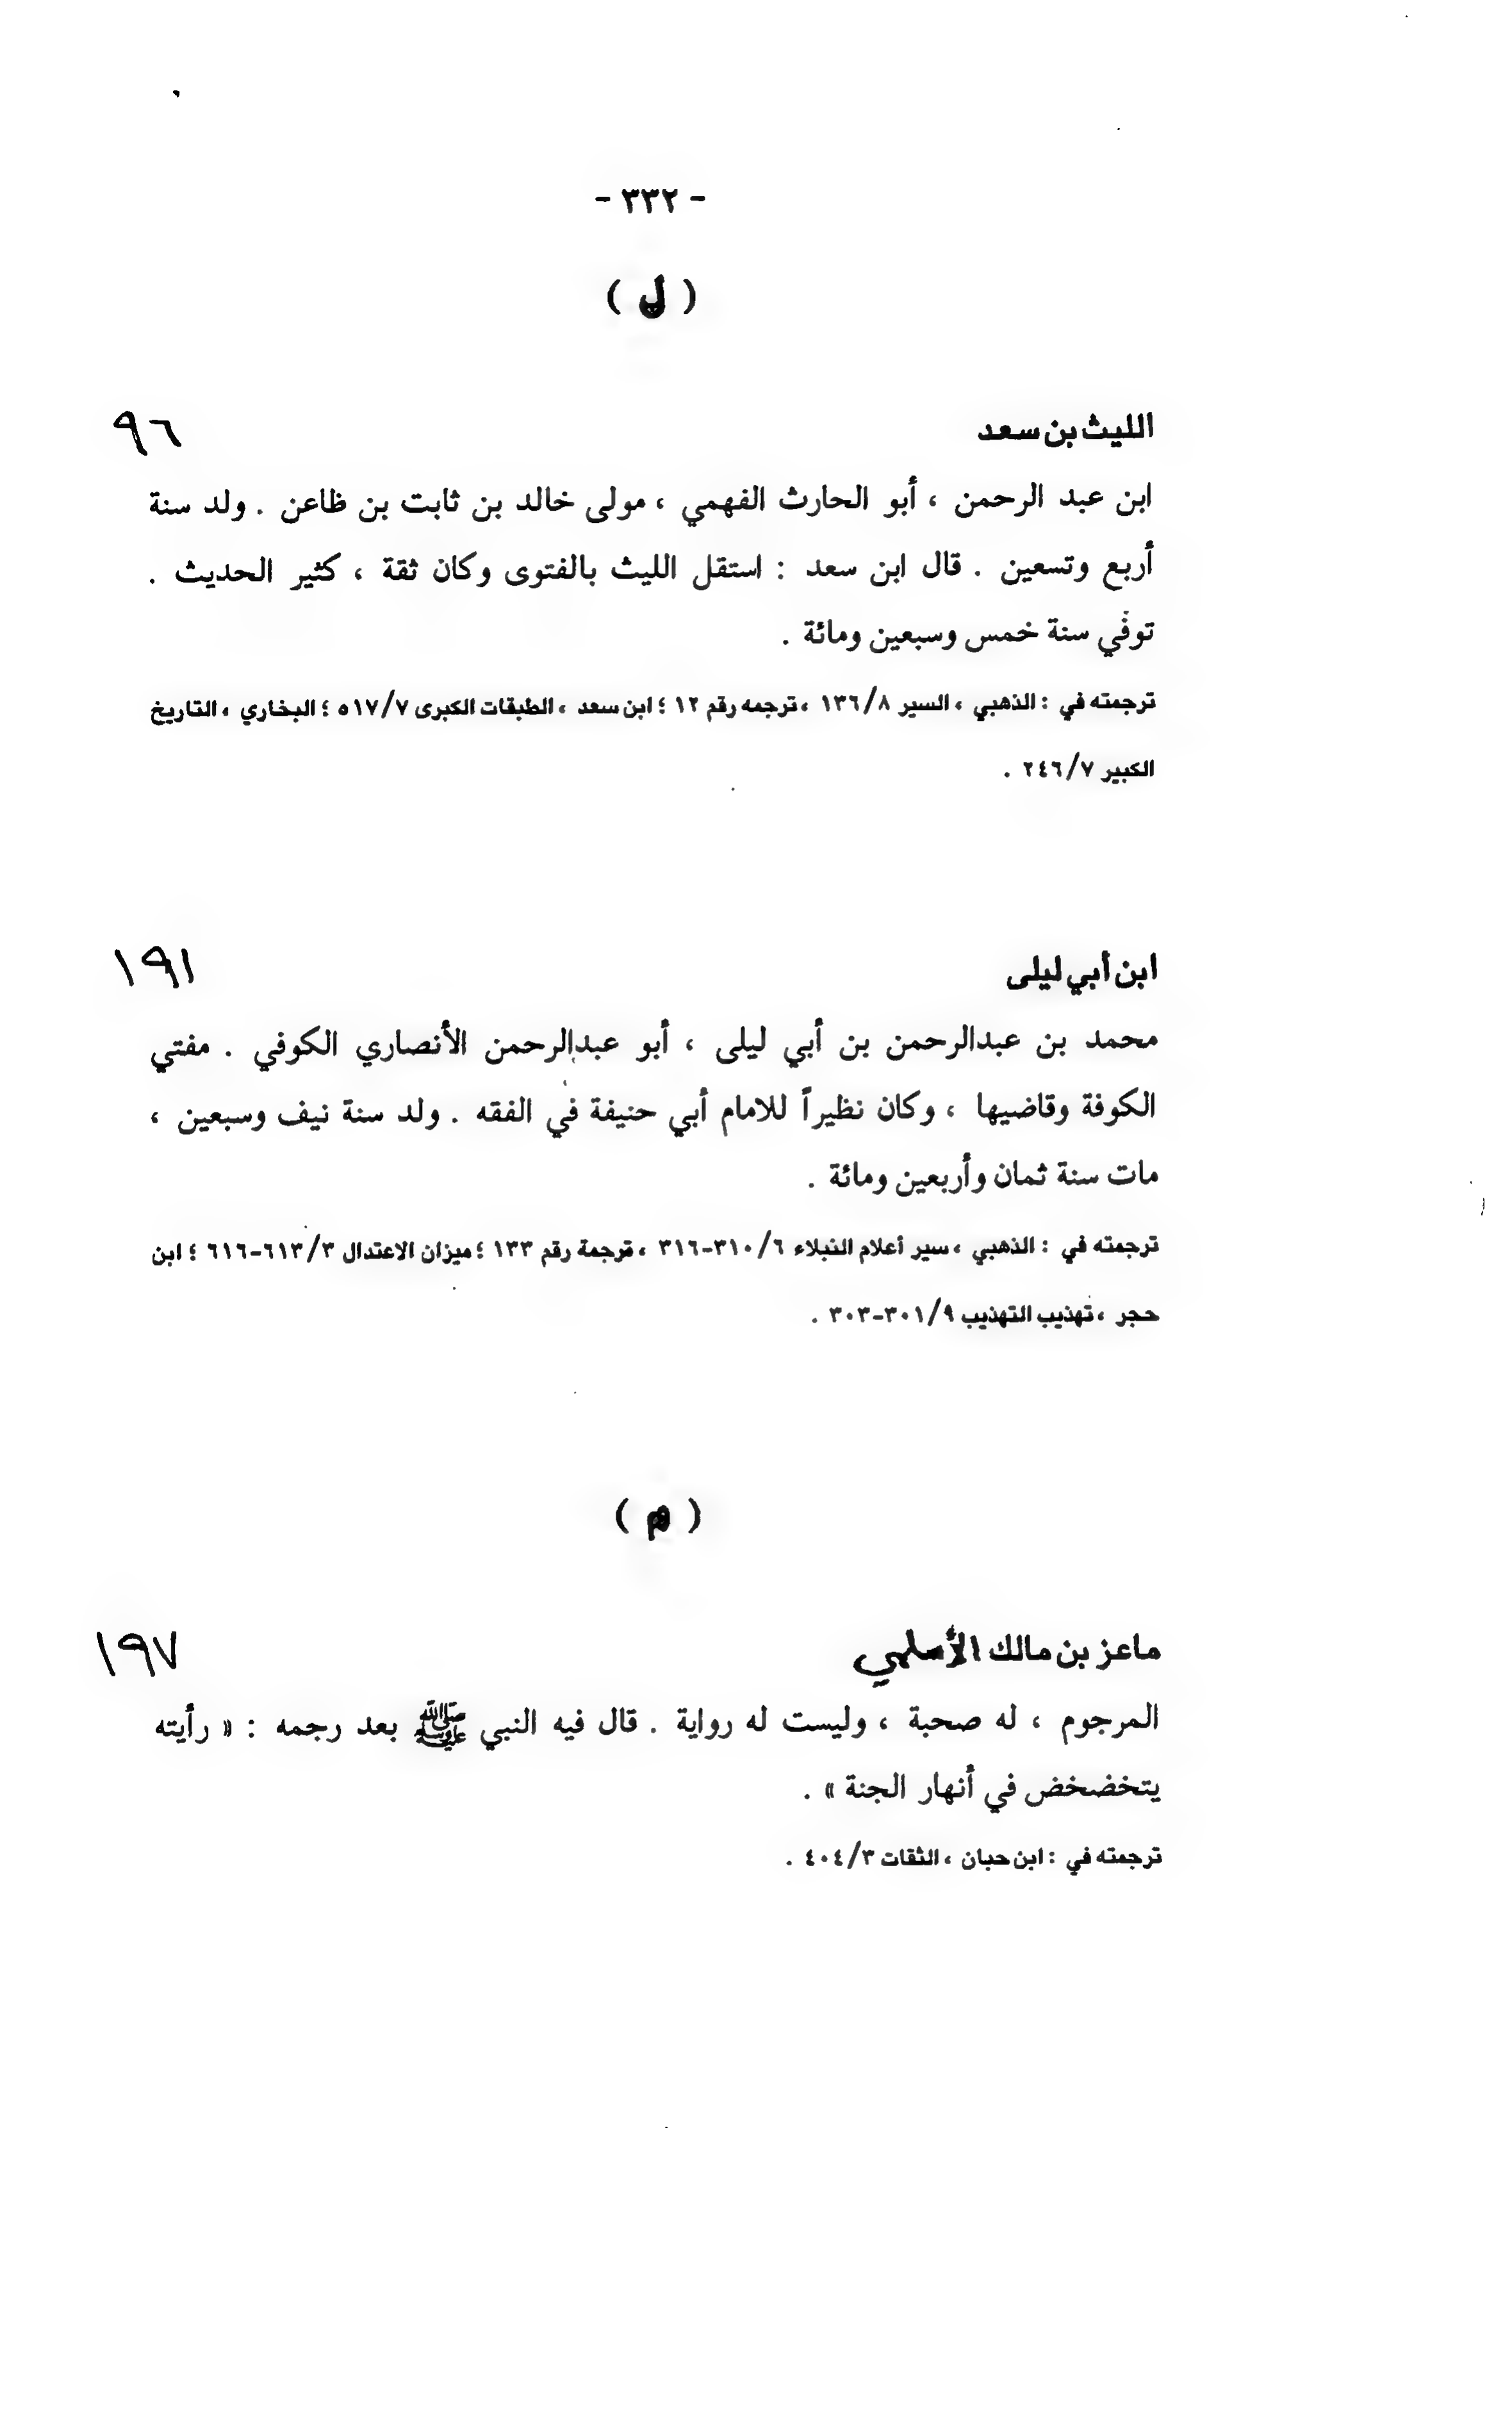 - ٣٣٢ -
( ل )
الليث بن سعد ٩٦
ابن عبد الرحمن ، أبو الحارث الفهمي ، مولى خالد بن ثابت بن ظاعن . ولد سنة
أربع وتسعين . قال ابن سعد : استقل الليث بالفتوى وكان ثقة ، كثير الحديث .
توفي سنة خمس وسبعين ومائة .
ترجمته في : الذهبي ، السير ١٣٦/٨ ، ترجمه رقم ١٢ ؛ ابن سعد ، الطبقات الكبرى ٥١٧/٧ ؛ البخاري ، التاريخ
الكبير ٢٤٦/٧ .
ابن أبي ليلى ١٩١
محمد بن عبدالرحمن بن أبي ليلى ، أبو عبدالرحمن الأنصاري الكوفي . مفتي
الكوفة وقاضيها ، وكان نظيراً للامام أبي حنيفة في الفقه . ولد سنة نيف وسبعين ،
مات سنة ثمان وأربعين ومائة .
ترجمته في : الذهبي ، سير أعلام النبلاء ٣١٠/٦-٣١٦ ، ترجمة رقم ١٣٣ ؛ ميزان الاعتدال ٦١٣/٣-٦١٦ ؛ ابن
حجر ، تهذيب التهذيب ٣٠١/٩-٣٠٣ .
( م )
ماعز بن مالك الأسلمي ١٩٧
المرجوم ، له صحبة ، وليست له رواية . قال فيه النبي ﷺ بعد رجمه : « رأيته
يتخضخض في أنهار الجنة » .
ترجمته في : ابن حبان ، الثقات ٤٠٤/٣ .